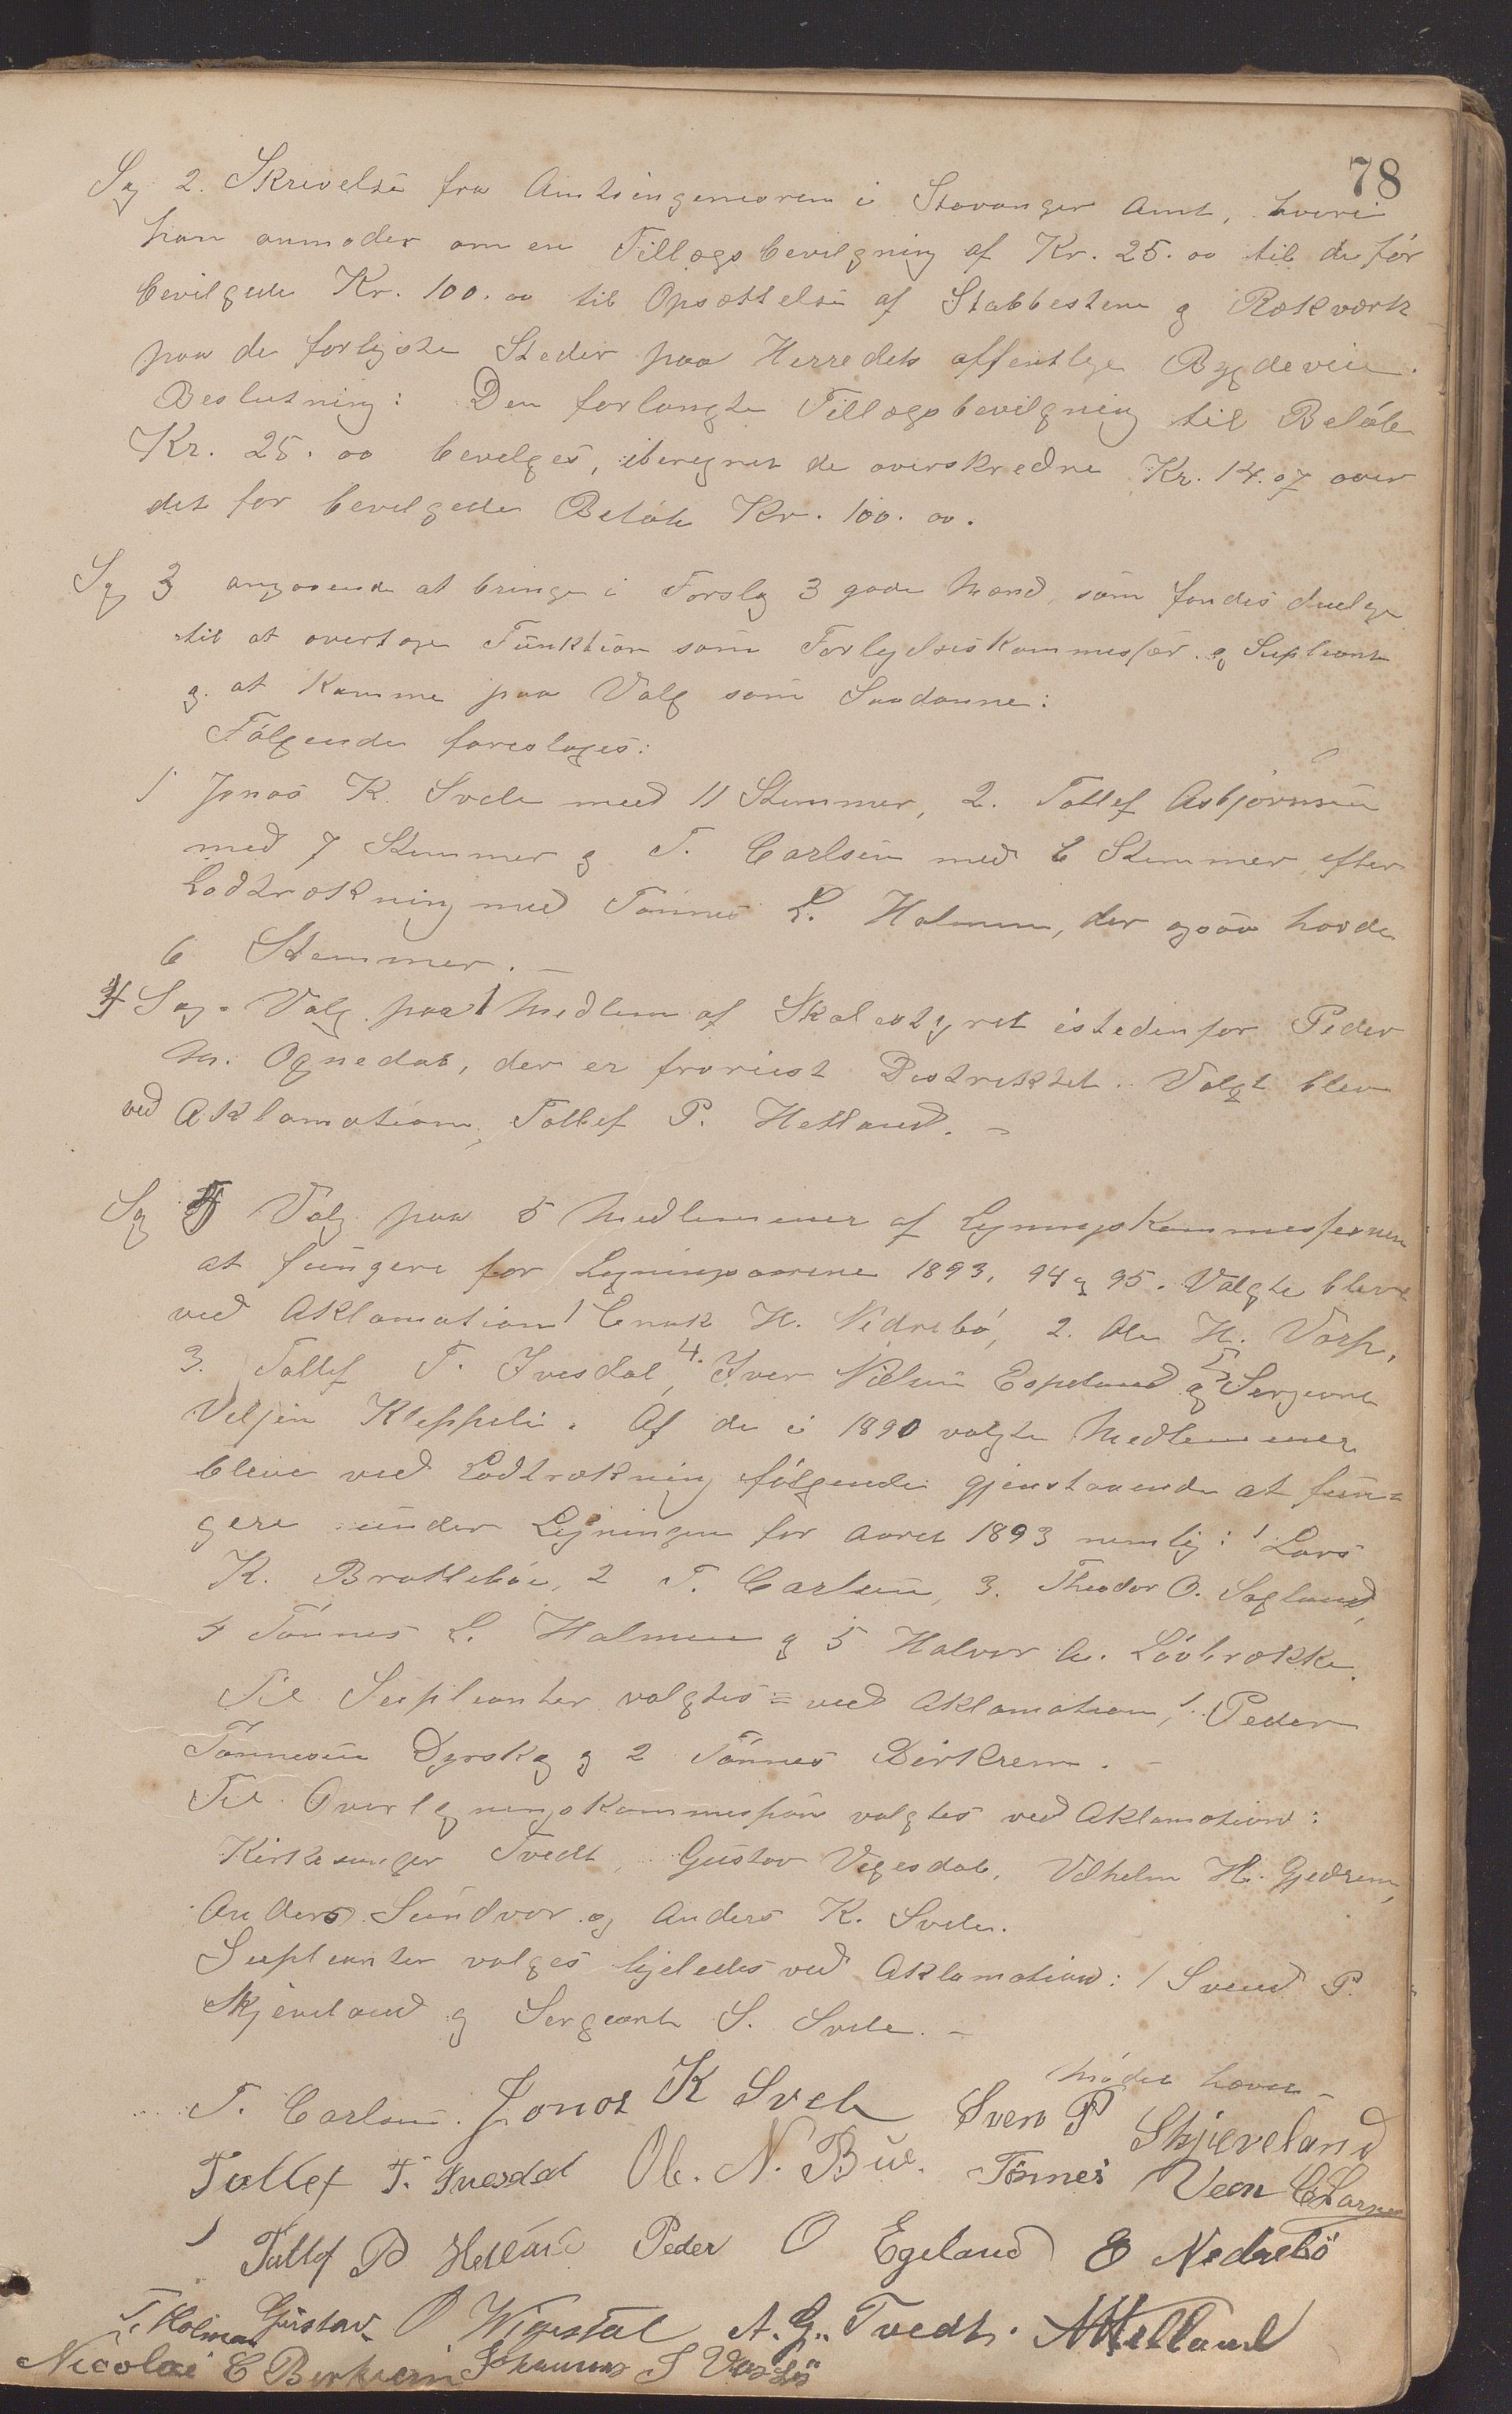 78
Sag 2. Skrivelse fra Amtsingeniøren i Stavanger Amt, hvori
han anmoder om en Tillægsbevilgning af Kr. 25.00 til de før
bevilgede Kr. 100.00 til Opsættelse af Stabbestene og Rækværk
paa de farligste Steder paa Herredets offentlige Bygdeveie.
Beslutning: Den forlangte Tillægsbevilgning til Beløb
Kr. 25.00 bevilges, iberegnet de overskredne Kr. 14.07 over
det før bevilgede Beløb Kr. 100.00.
Sag 3 angaaende at bringe i Forslag 3 gode Mænd, som findes duelige
til at overtage Funktion som Forligelseskommissær og Supleant
og at komme paa Valg som Saadanne:
Følgende foreslages:
1 Jonas K. Svele med 11 Stemmer, 2. Tollef Asbjørnsen
med 7 Stemmer og T. Carlsen med 6 Stemmer, efter
Lodtrækning med Tønnes L. Holmen, der ogsaa havde
6 Stemmer. –
4 Sag. Valg paa 1 Medlem af Skolestyret istedenfor Peder
M. Ognedal, der er frareist Distriktet. Valgt blev
ved Aklamation, Tollef P. Hetland. –
Sag 5 Valg paa 5 Medlemmer af Ligningskommissionen
at fungere for Ligningsaarene 1893, 94 og 95. Valgte bleve
ved Aklamation 1 Enok H. Nedrebø, 2. Ole H. Vasp,
3. Tollef T. Ivesdal, 4. Iver Nilsen Espeland og 5 Sergeant
Veljen Kleppeli. Af de i 1890 valgte Medlemmer
bleve ved Lodtrækning følgende gjenstaaende at fun=
gere under Ligningen for Aaret 1893 nemlig: 1 Lars
K. Brattebøe, 2 T. Carlsen, 3. Theodor O. Sagland,
4 Tønnes L. Holmen og 5 Halvor A. Løvbrække.
Til Supleanter valgtes = ved Aklamation, 1. Peder
Tønnesen Dyrskog og 2 Tønnes Birkrem. –
Til Overligningskommission valgtes ved Aklamation:
Kirkesanger Tvedt, Gustav Vigesdal, Vilhelm H. Gjedrem,
Anders Sundvor og Anders K. Svele.
Supleanter valges ligeledes ved Aklamation: 1 Svend P.
Skjæveland og Sergeant S. Svele. –
Mødet hævet –
T. Carlsen. Jonas K Svele Sven P Skjæveland
Tollef T. Ivesdal Ole. N. Bue. Tønnes Veen C Larsen
Tollef P Hetland Peder O Egeland E Nedrebö
T. Holmen Gustav O Wigestal A. G. Tvedt. A Hetland
Nicolai C Birkrem Johannes S